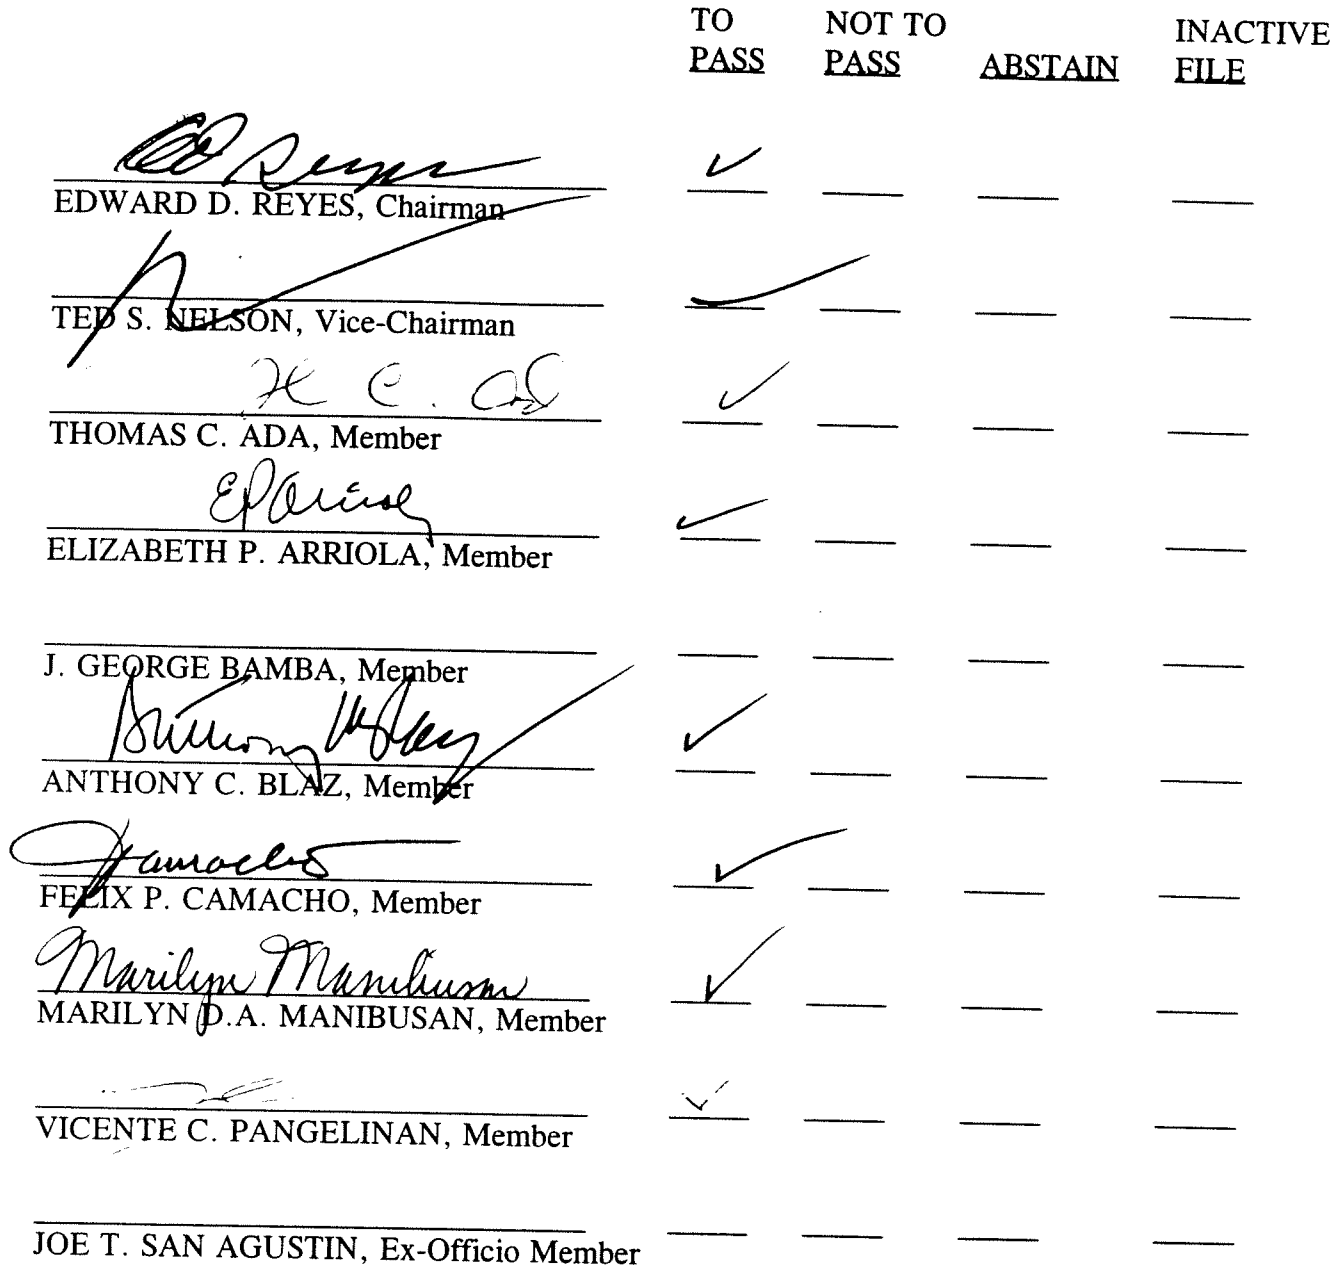 TO PASS NOT TO PASS ABSTAIN INACTIVE FILE
Ed Reyes ✓
EDWARD D. REYES, Chairman
✓
TED S. NELSON, Vice-Chairman
C. Ada ✓
THOMAS C. ADA, Member
EPArriola ✓
ELIZABETH P. ARRIOLA, Member
J. GEORGE BAMBA, Member
Anthony C Blaz ✓
ANTHONY C. BLAZ, Member
Camacho ✓
FELIX P. CAMACHO, Member
Marilyn Manibusan ✓
MARILYN D.A. MANIBUSAN, Member
✓
VICENTE C. PANGELINAN, Member
JOE T. SAN AGUSTIN, Ex-Officio Member